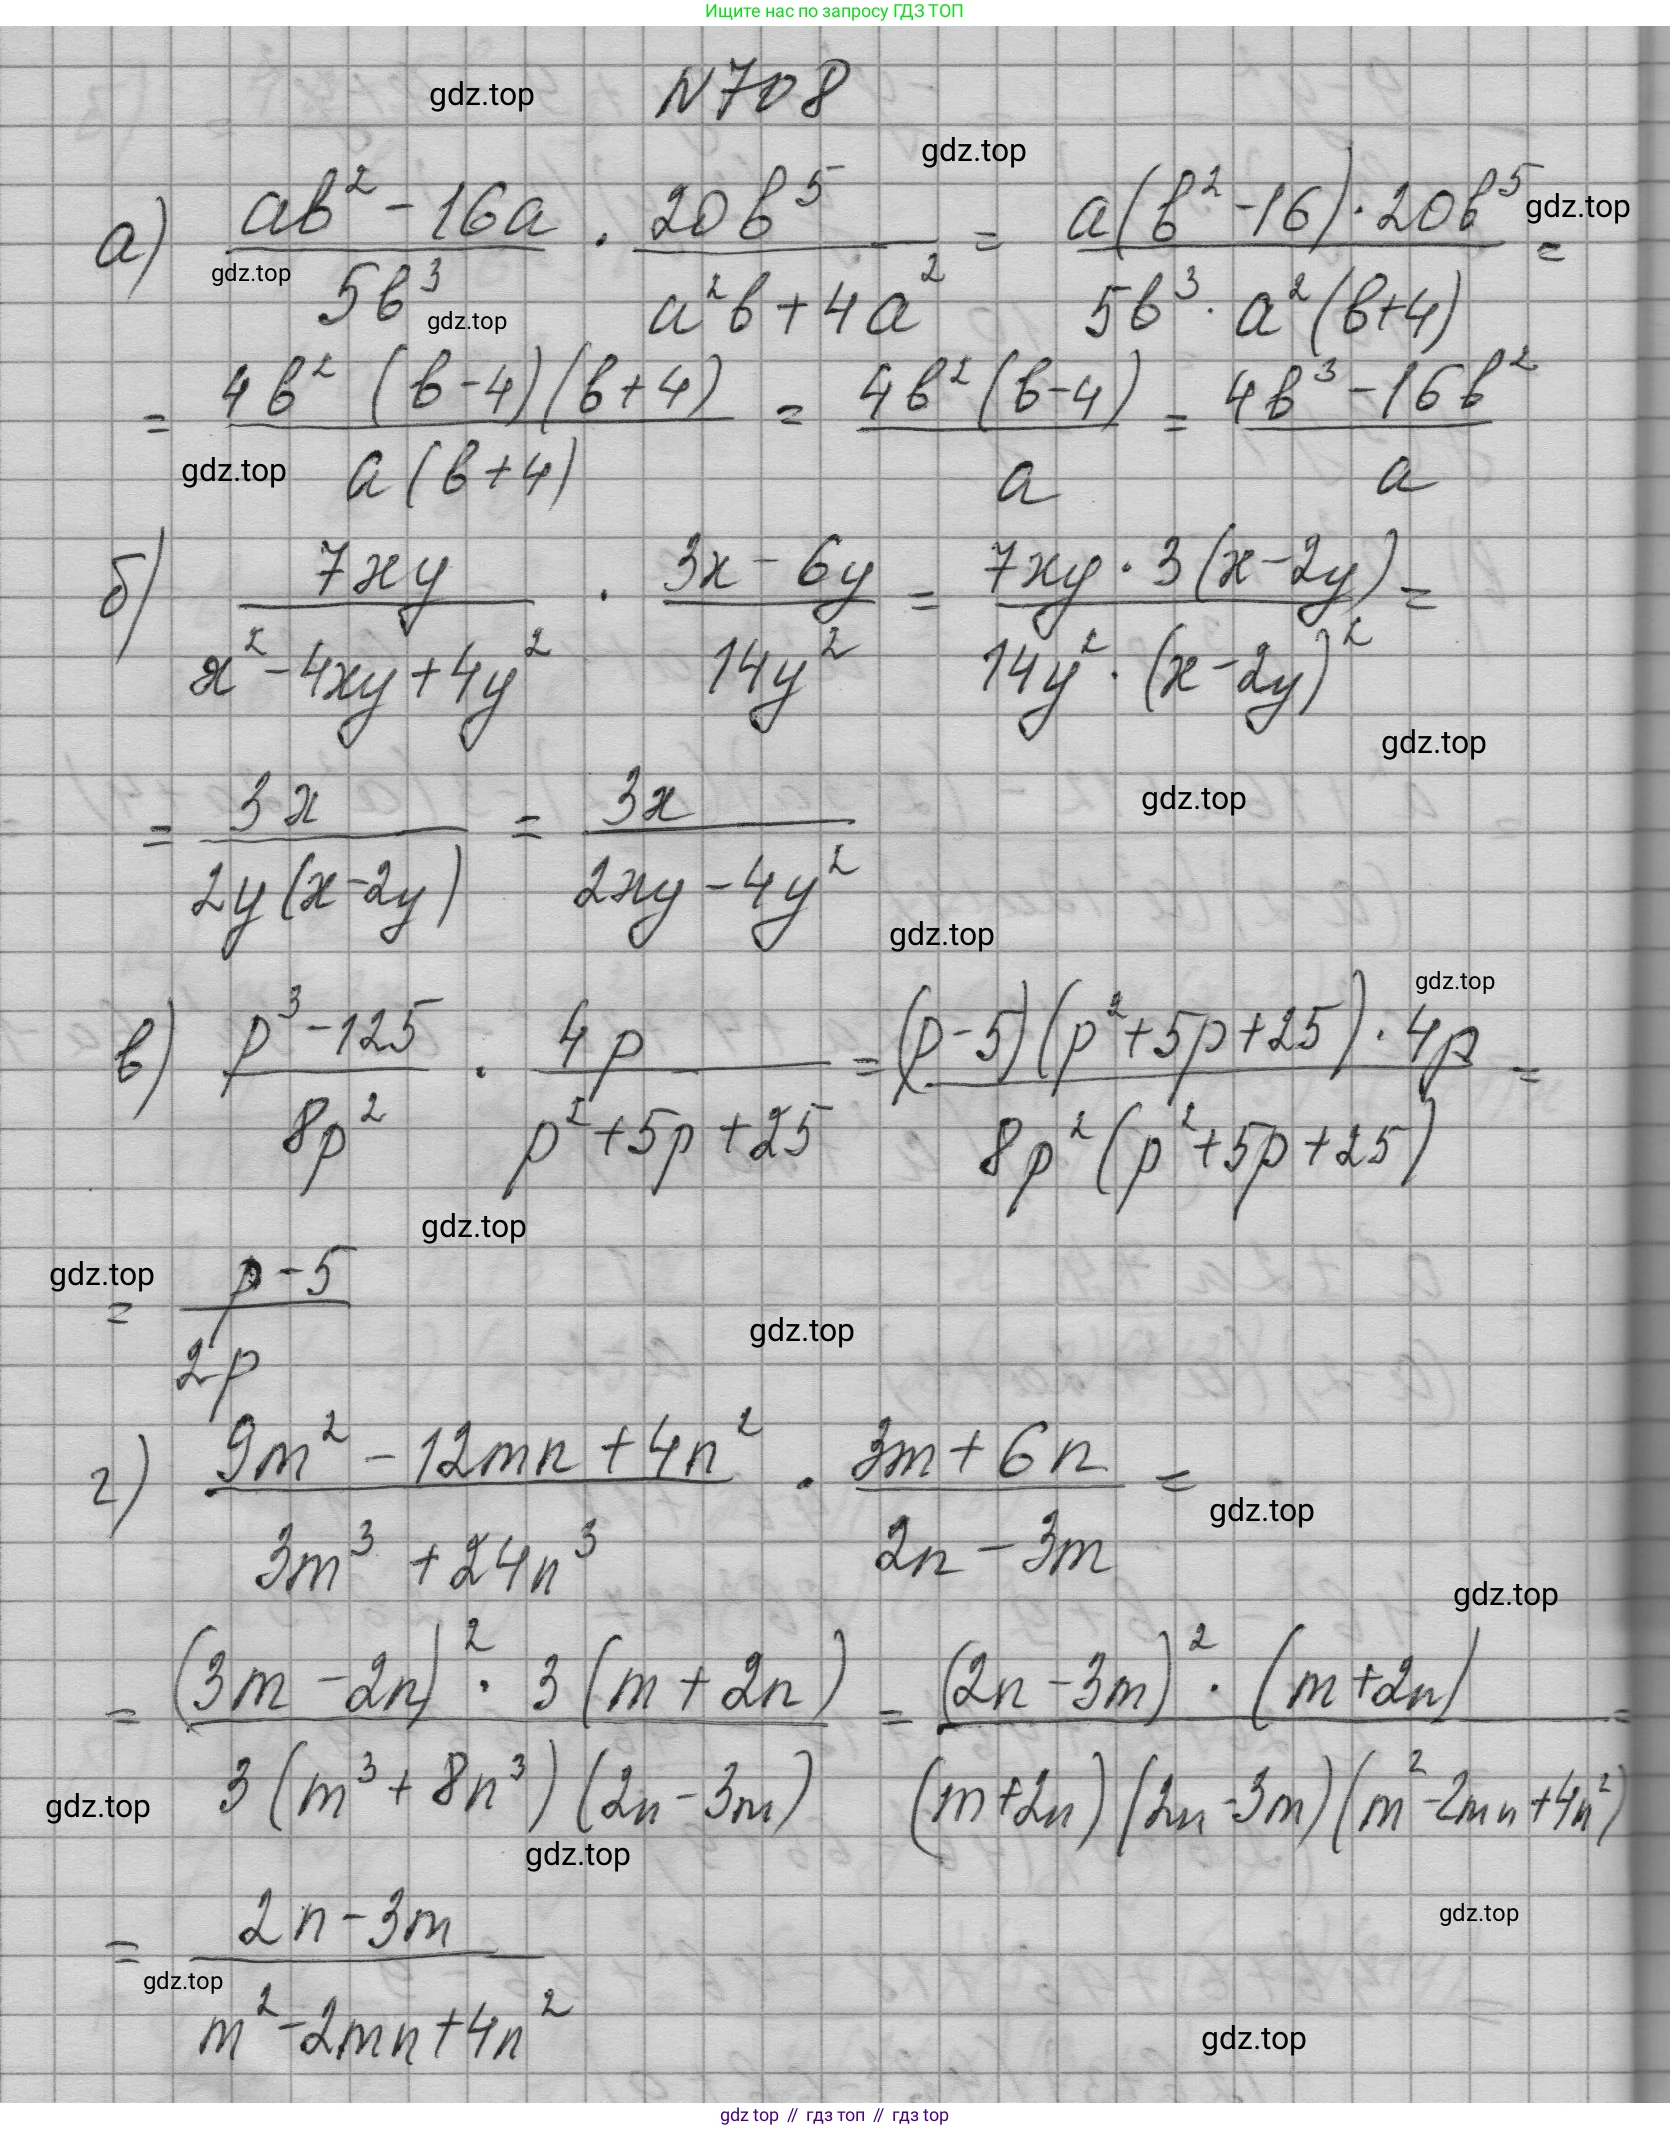 Ищите нас по запросу ГДЗ ТОП
N708
gdz.top
gdz.top
а) (ав² - 16а)/(5в³) · (20в⁵)/(а²в + 4а²) = (а(в² - 16) · 20в⁵)/(5в³ · а²(в+4)) =
gdz.top
gdz.top
gdz.top
= (4в² (в-4)(в+4))/(а(в+4)) = (4в²(в-4))/а = (4в³ - 16в²)/а
gdz.top
б) (7xy)/(x² - 4xy + 4y²) · (3x - 6y)/(14y²) = (7xy · 3(x-2y))/(14y² · (x-2y)²) =
gdz.top
gdz.top
= (3x)/(2y(x-2y)) = (3x)/(2xy - 4y²)
gdz.top
gdz.top
в) (p³ - 125)/(8p²) · (4p)/(p² + 5p + 25) = ((p-5)(p² + 5p + 25) · 4p)/(8p²(p² + 5p + 25)) =
gdz.top
gdz.top
= (p - 5)/(2p)
gdz.top
г) (9m² - 12mn + 4n²)/(3m³ + 24n³) · (3m + 6n)/(2n - 3m) =
gdz.top
gdz.top
= ((3m - 2n)² · 3(m + 2n))/(3(m³ + 8n³)(2n - 3m)) = ((2n - 3m)² · (m+2n))/((m+2n)(2n-3m)(m² - 2mn + 4n²)) =
gdz.top
gdz.top
gdz.top
= (2n - 3m)/(m² - 2mn + 4n²)
gdz.top
gdz.top
gdz top // гдз топ // гдз top